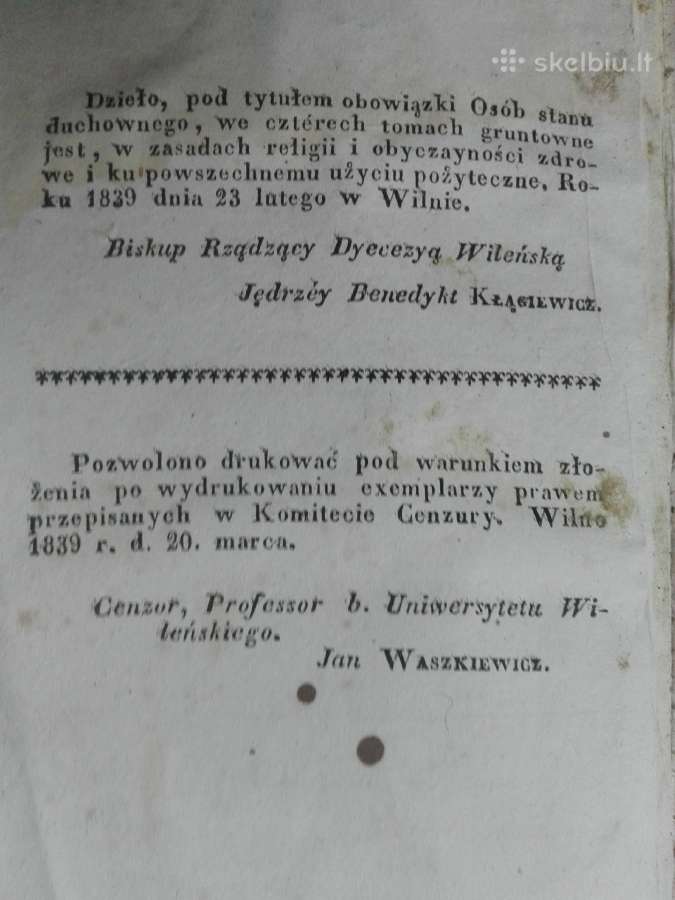 skelbiu.lt
Dzieło, pod tytułem obowiązki Osób stanu
duchownego, we cztérech tomach gruntowne
jest, w zasadach religii i obyczayności zdro-
we i ku powszechnemu użyciu pożyteczne. Ro-
ku 1839 dnia 23 lutego w Wilnie.
Biskup Rządzący Dyecezyą Wileńską
Jędrzéy Benedykt KŁĄGIEWICZ.
Pozwolono drukować pod warunkiem zło-
żenia po wydrukowaniu exemplarzy prawem
przepisanych w Komitecie Cenzury. Wilno
1839 r. d. 20. marca.
Cenzor, Professor b. Uniwersytetu Wi-
leńskiego.
Jan WASZKIEWICZ.